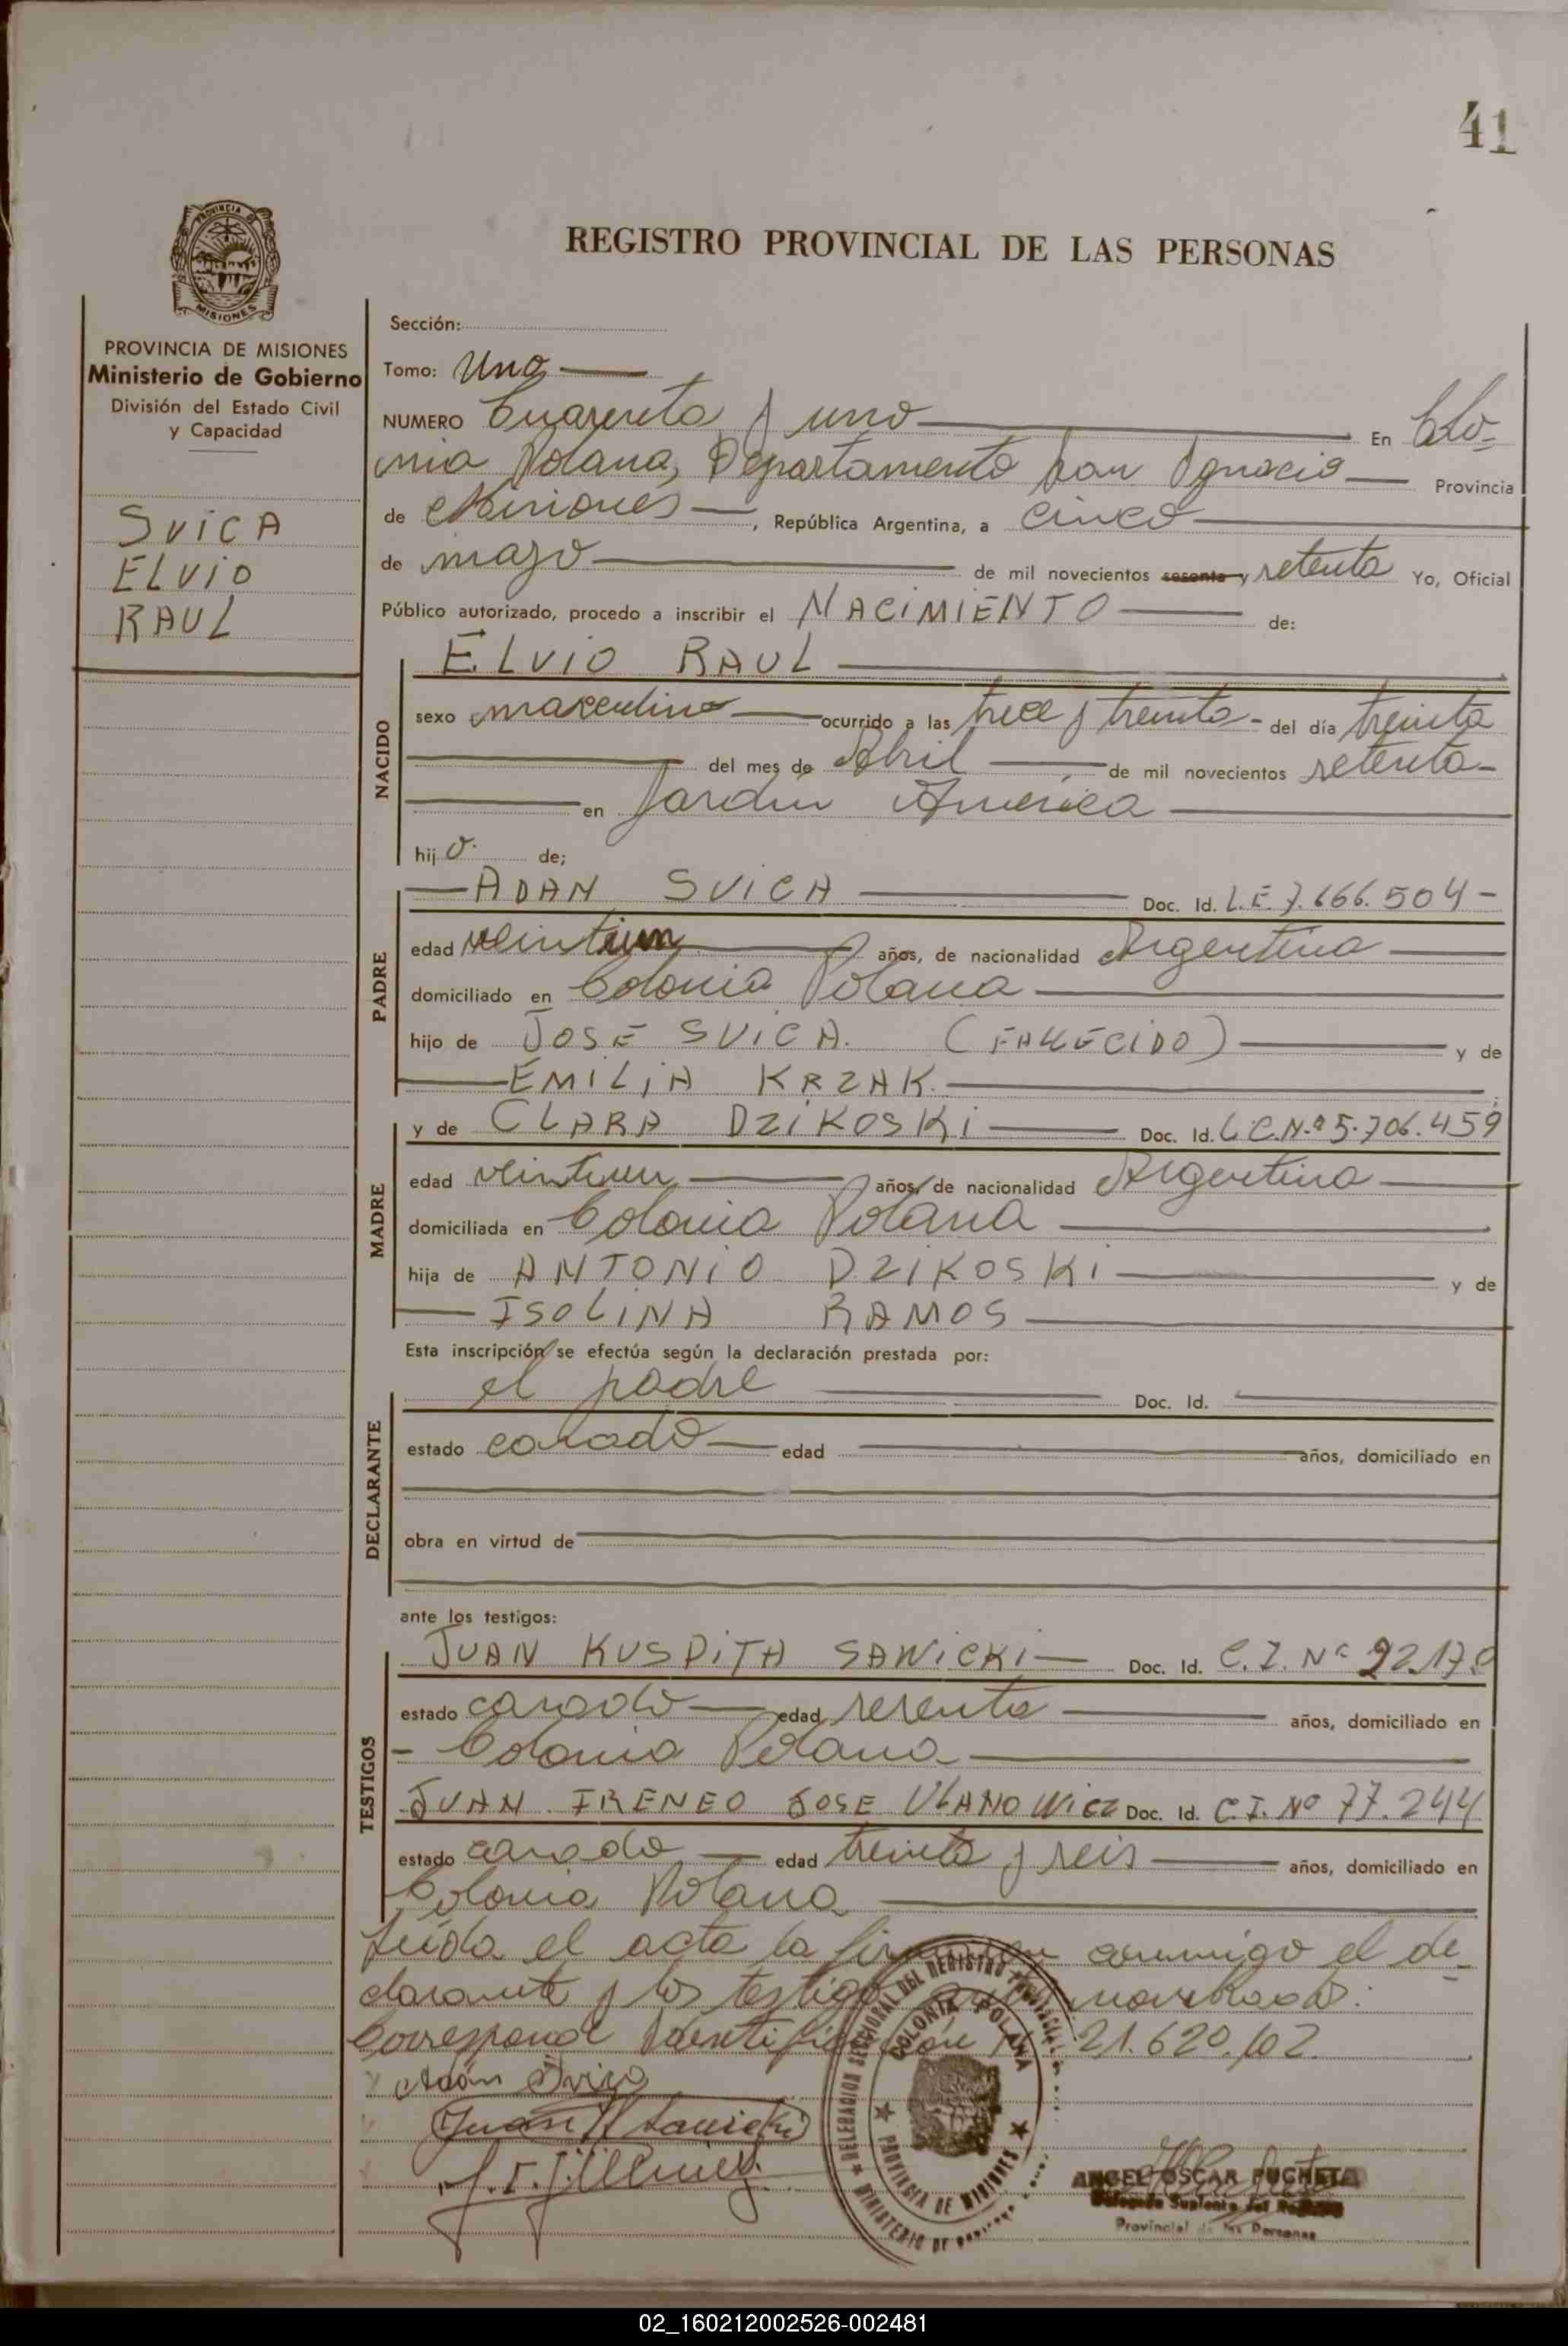 41
PROVINCIA DE
MISIONES
REGISTRO PROVINCIAL DE LAS PERSONAS
PROVINCIA DE MISIONES
Ministerio de Gobierno
División del Estado Civil
y Capacidad
SVICA
ELVIO
RAUL
Sección:
Tomo: Uno
NUMERO Cuarenta y uno En Colo-
nia Polana, Departamento San Ignacio Provincia
de Misiones, República Argentina, a cinco
de mayo de mil novecientos sesenta y setenta Yo, Oficial
Público autorizado, procedo a inscribir el NACIMIENTO de:
NACIDO
ELVIO RAUL
sexo masculino ocurrido a las trece y treinta - del día treinta
del mes de Abril de mil novecientos setenta-
en Jardin America
hijo de;
PADRE
ADAN SVICA Doc. Id. L.E. 7.666.504 -
edad veintiun años, de nacionalidad Argentina
domiciliado en Colonia Polana
hijo de JOSE SVICA. (FALLECIDO) y de
EMILIA KRZAK.
MADRE
y de CLARA DZIKOSKI Doc. Id. L.C.N.º 5.706.459
edad veintiun años, de nacionalidad Argentina
domiciliada en Colonia Polana
hija de ANTONIO DZIKOSKI y de
ISOLINA RAMOS
Esta inscripción se efectúa según la declaración prestada por:
DECLARANTE
el padre Doc. Id.
estado casado edad años, domiciliado en
obra en virtud de
ante los testigos:
TESTIGOS
JUAN KUSPITA SAWICKI Doc. Id. C.I. Nº
estado casado edad sesenta años, domiciliado en
- Colonia Polana
JUAN IRENEO JOSE ULANOWICZ Doc. Id. C.I. Nº 77.244
estado casado edad treinta y seis años, domiciliado en
Colonia Polana
Leída el acta la firman conmigo el de-
clarante y los testigos nombrados:
Corresponde Identificación 21.620.102.
Adán Svica
DELEGACION SECCIONAL DEL REGISTRO
COLONIA POLANA
PROVINCIA DE MISIONES
MINISTERIO DE
ANGEL OSCAR PUCHETA
Delegado Suplente del
Provincial de las Personas
02_160212002526-002481